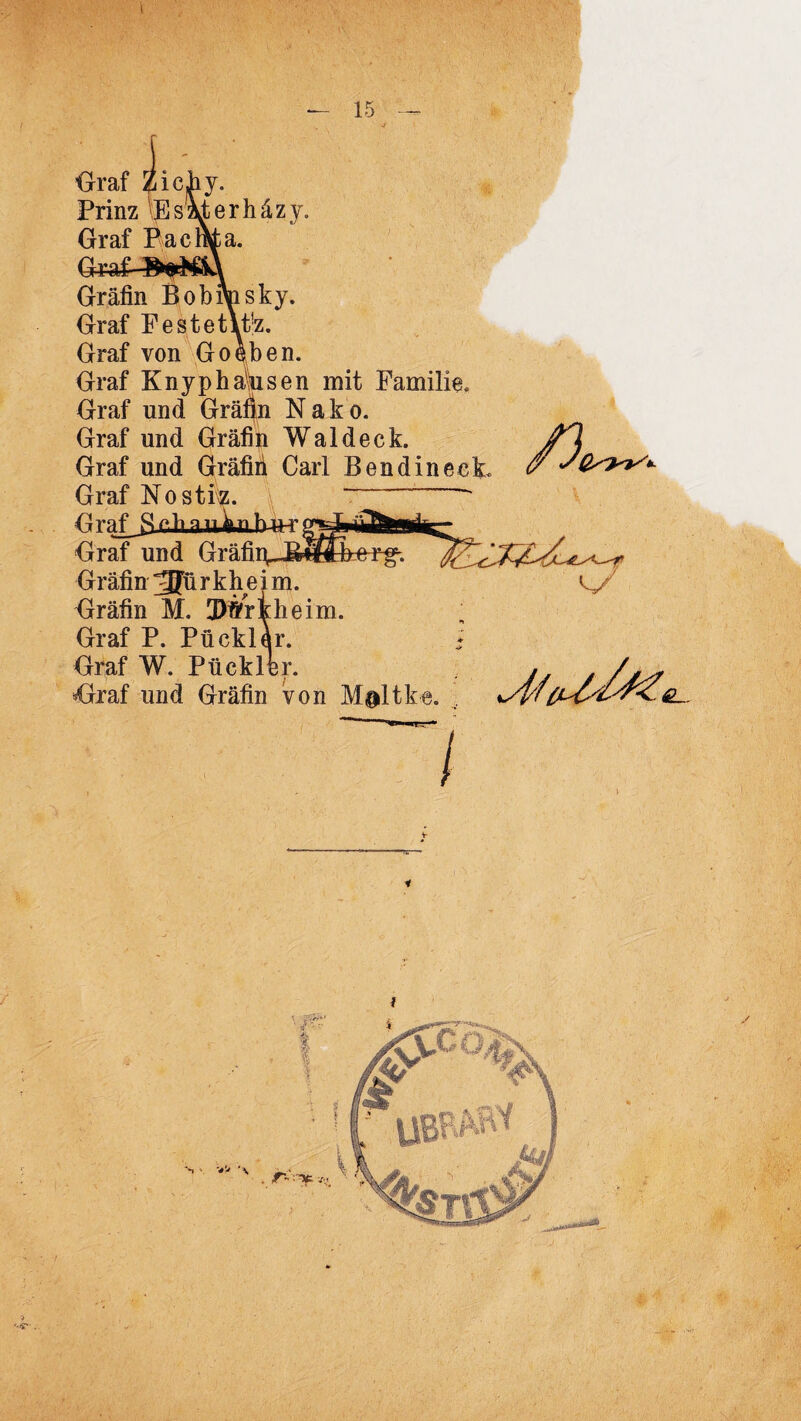 — 15 —
Graf Zichy.
Prinz Esterházy.
Graf Pachta.
Graf
Gräfin Bobinsky.
Graf Festetitz.
Graf von Goeben.
Graf Knyphausen mit Familie.
Graf und Gräfin Nako.
Graf und Gräfin Waldeck.
Graf und Gräfin Carl Bendineck.
Graf Nostiz.
Graf Schaunburg
Graf und Gräfin
Gräfin Dürkheim.
Gräfin M. Dürkheim.
Graf P. Pückler.
Graf W. Pückler.
Graf und Gräfin von Moltke. Moltke
WELLCOME
LIBRARY
INSTITUTE